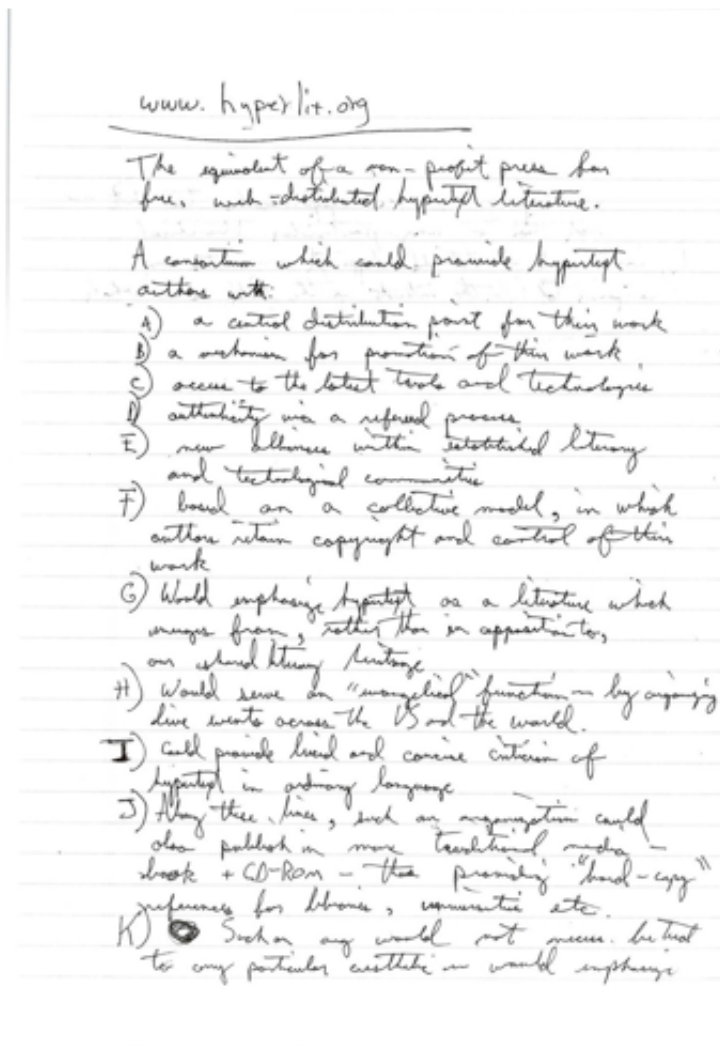 www.hyperlit.org
The equivalent of a non-profit press for
free, web-distributed, hypertext literature.
A consortium which could provide hypertext
authors with:
A) a central distribution point for their work
B) a mechanism for promotion of their work
C) access to the latest tools and technologies
D) authenticity via a refereed process
E) new alliances within established literary
and technological communities
F) based on a collective model, in which
authors retain copyright and control of their
work
G) Would emphasize hypertext as a literature which
emerges from, rather than in opposition to,
our shared literary heritage
H) Would serve an "evangelical" function — by organizing
live events across the US and the world.
I) Could provide lucid and concise criticism of
hypertext in ordinary language
J) Along these lines, such an organization could
also publish in more traditional media -
book + CD-ROM - thus providing "hard-copy"
references for libraries, universities etc.
K) Such an org would not necess. be tied
to any particular aesthetic — would emphasize